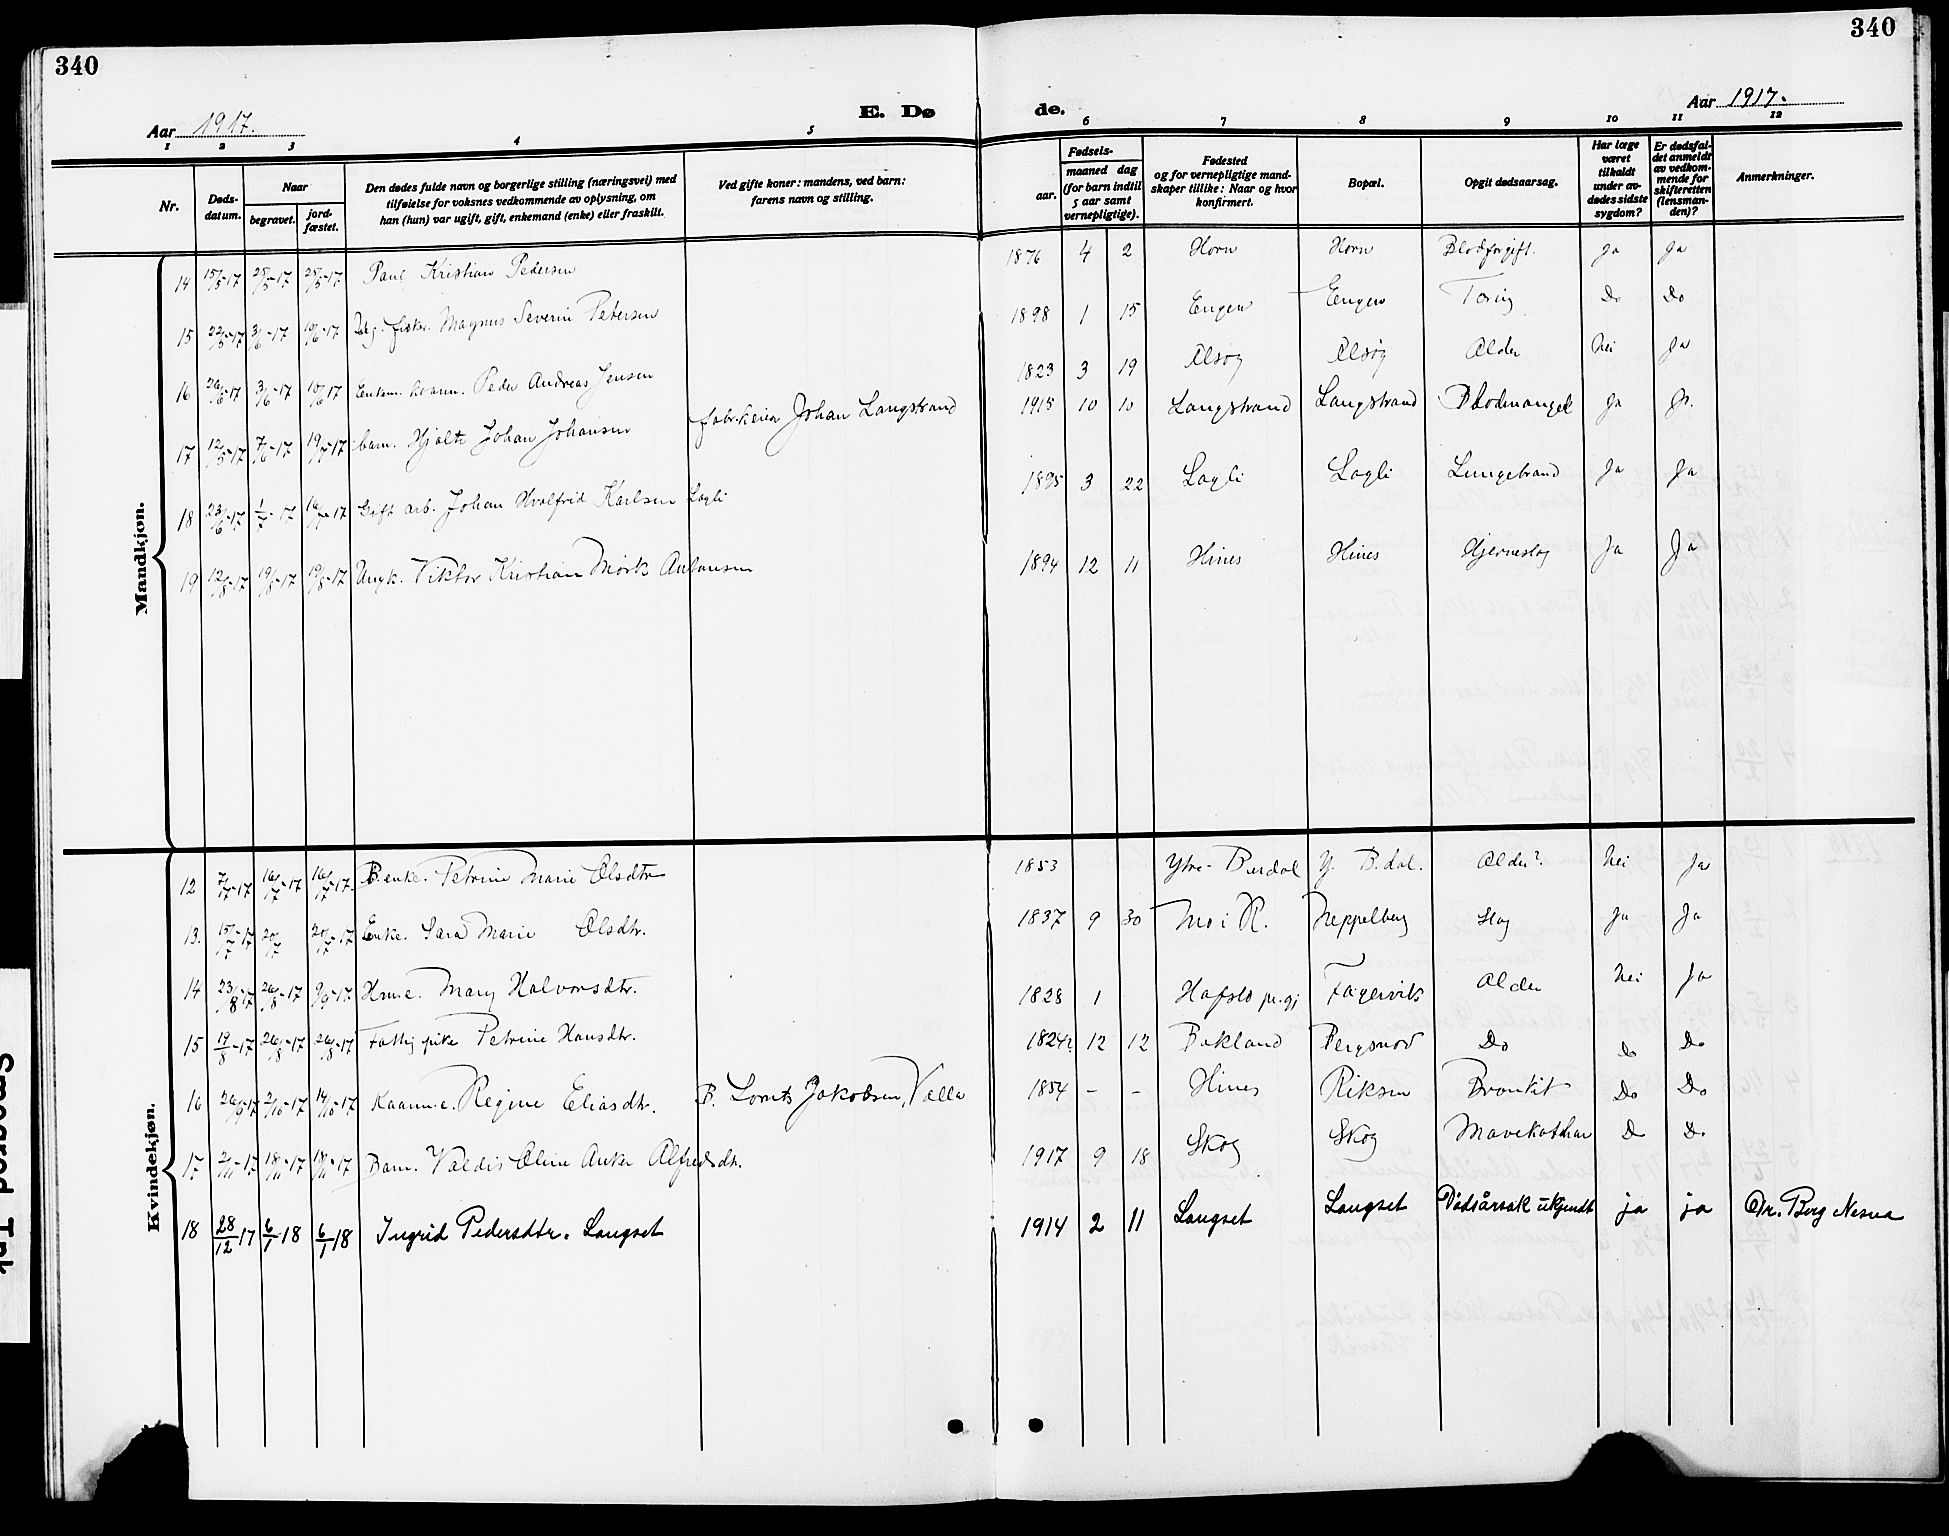 340
340
E. Dø
de.
Aar 1917.
Aar 1917.
1 2 3 4 5
6 7 8 9 10 11 12
Nr.
Døds-
datum.
Naar
begravet.
jord-
fæstet.
Den dødes fulde navn og borgerlige stilling (næringsvei) med
tilføielse for voksnes vedkommende av oplysning, om
han (hun) var ugift, gift, enkemand (enke) eller fraskilt.
Ved gifte koner: mandens, ved barn:
farens navn og stilling.
Fødsels-
aar.
maaned dag
(for barn indtil
5 aar samt
vernepligtige).
Fødested
og for vernepligtige mand-
skaper tillike: Naar og hvor
konfirmert.
Bopæl.
Opgit dødsaarsag.
Har læge
været
tilkaldt
under av-
dødes sidste
sygdom?
Er dødsfal-
det anmeldt
av vedkom-
mende for
skifteretten
(lensman-
den)?
Anmerkninger.
Mandkjøn.
14 15/5-17 25/5-17 25/5-17 Paul Kristian Pedersen 1876 4 2 Horn Horn Blodforgift. Ja Ja
15 22/5-17 3/6-17 10/6-17 fisker. Magnus Severin Petersen 1898 1 15 Engen Engen Tæring Do Do
16 26/5-17 3/6-17 10/6 17 Enkem. kaarm. Peder Andreas Jensen 1823 3 19 Alsøy Alsøy Alder Nei Ja
17 12/5-17 7/6-17 19/7-17 barn. Hjalte Johan Johansen Johan Langstrand 1915 10 10 Langstrand Langstrand Blodmangel Ja Ja
18 23/6-17 1/7-17 16/7-17 Gift arb. Johan Hvalfrid Karlsen Løgli 1895 3 22 Løgli Løgli Lungebrand Ja Ja
19 12/8-17 19/8-17 19/8-17 Ungk. Viktor Kristian Mørk Antonsen 1894 12 11 Hines Hines Hjerneslag Ja Ja
Kvindekjøn.
12 7/7-17 16/7-17 16/7-17. B. enke. Petrine Marie Olsdtr 1853 Ytre-Bardal Y. B.dal. Alder?. Nei Ja
13. 15/7-17 20/7 20/7-17 Enke. Sara Marie Olsdtr. 1837 9 30 Mo i R. Neppelberg Slag Ja Ja
14 23/8-17 26/8-17 9/9-17. Hm.e. Mary Halvorsdtr. 1828 1 Hafslo pr.gj Fagervik Alder Nei Ja
15 19/8-17 26/8-17 26/8-17 Fattig pike Petrine Hansdtr. 1824? 12 12 Bakland Bergsnov Do Do Do
16 26/9-17 2/10-17 14/10-17 Kaarm.e. Regine Eliasdtr. B. Lornts Jakobsen, Valla 1854 - - Hines Riksen Bronkit Do Do
17 2/11-17 18/11-17 18/11-17 Barn. Valdis Oline Anke Alfredsdtr. 1917 9 18 Skog Skog Mavekathar Do Do
18 28/12 17 6/1-18 6/1 18 Ingrid Pedersdtr. Langset 1914 2 11 Langset Langset Dødsårsak ukjendt ja ja Dr. Berg Nesna